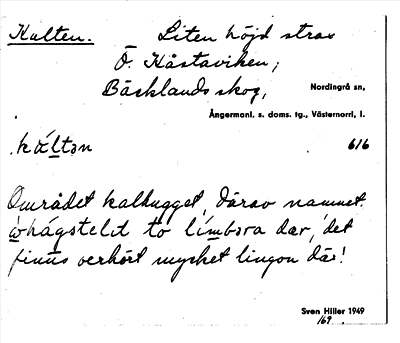 Kalten. Liten höjd strax
Ö. Kåstaviken;
Bäcklands skog, Nordingrå sn,
Ångermanl. s. doms. tg., Västernorrl, l.
kál̲tən 616
Området kalhugget, därav namnet.
to límbəra dar, 'det
finns oerhört mycket lingon där!
Sven Hiller 1949
169